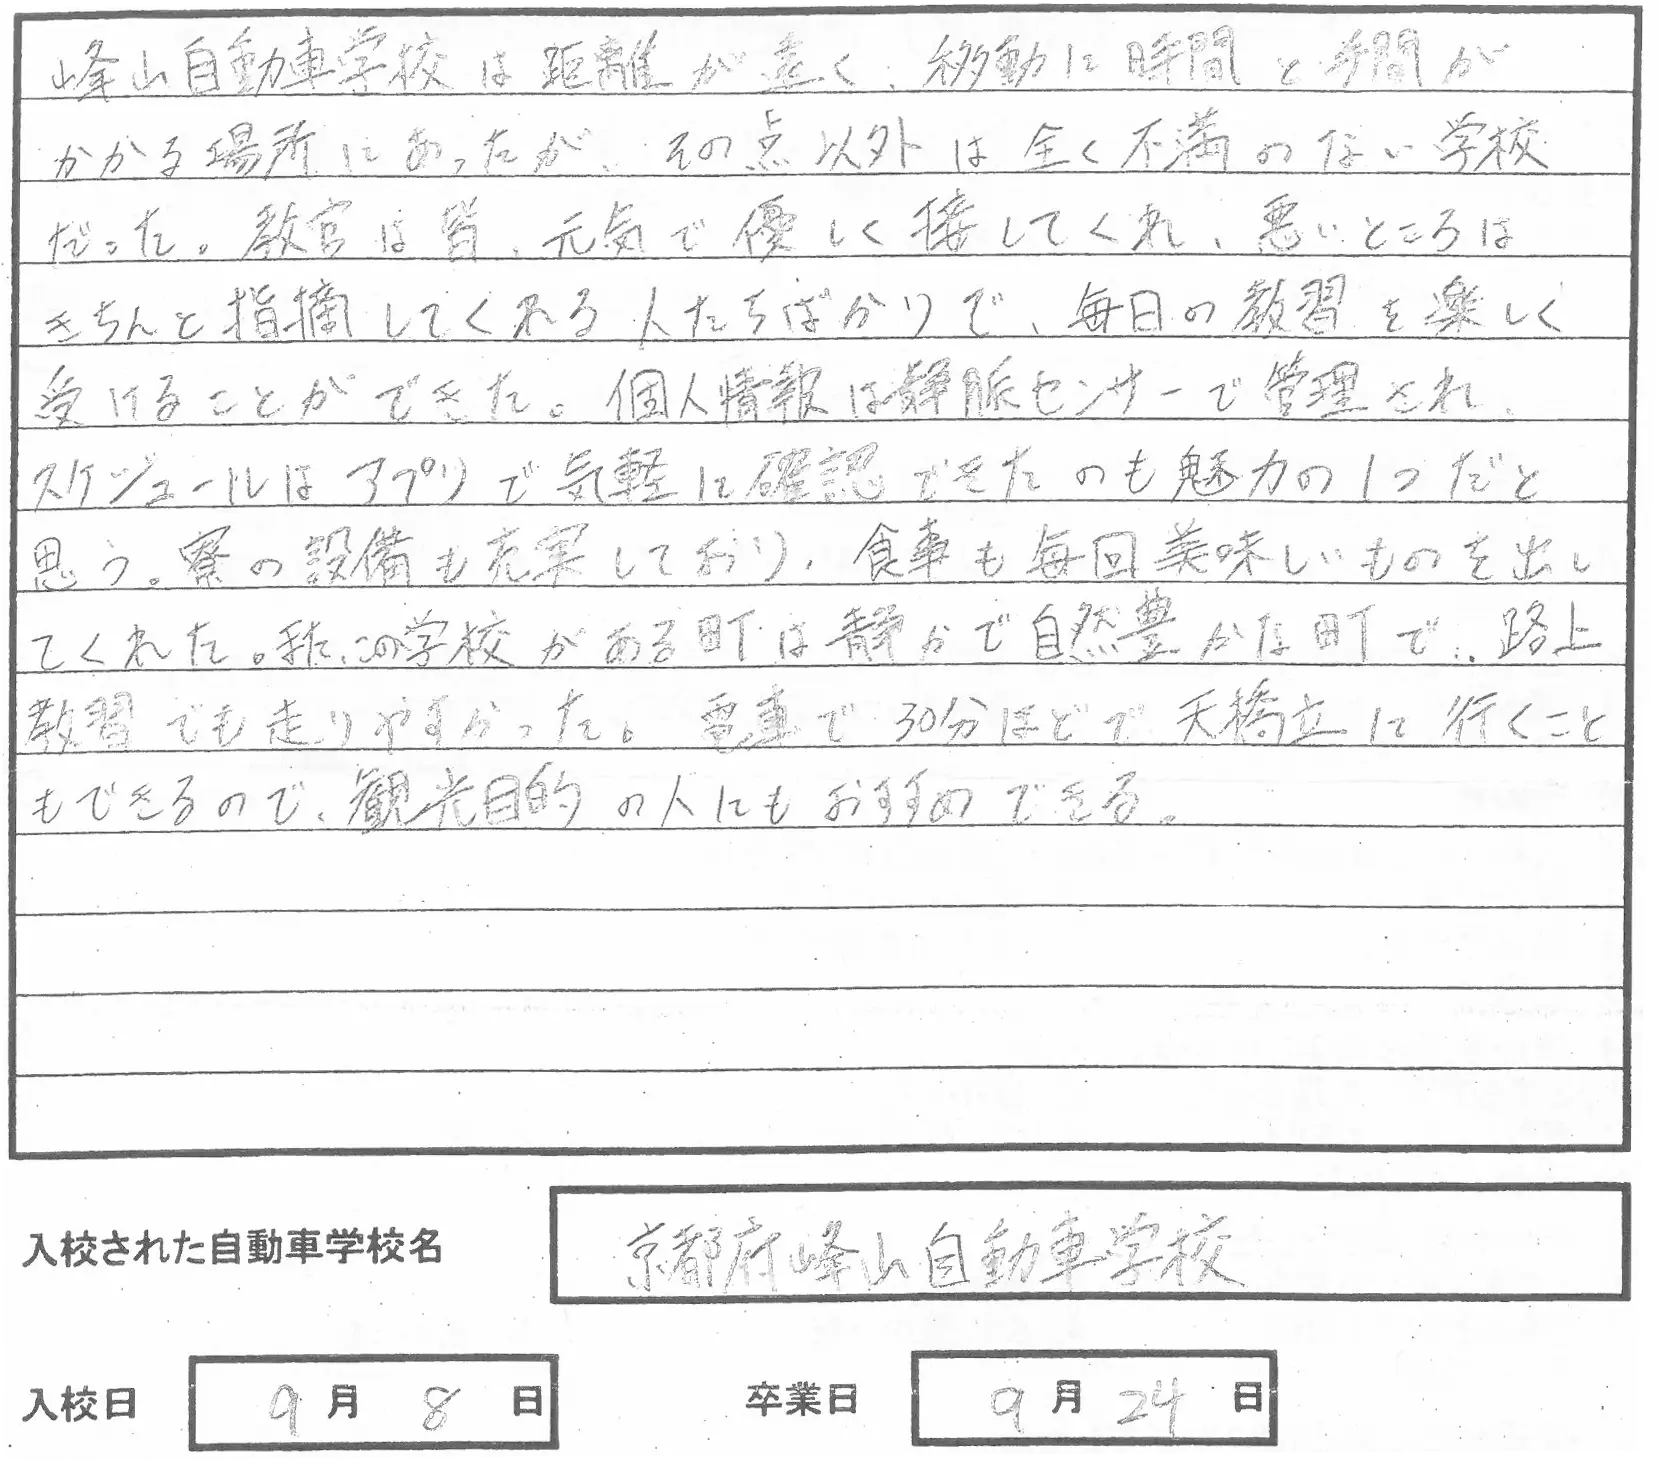 峰山自動車学校は距離が遠く、移動に時間と手間が
かかる場所にあったが、その点以外は全く不満のない学校
だった。教官は皆、元気で優しく接してくれ、悪いところは
きちんと指摘してくれる人たちばかりで、毎日の教習を楽しく
受けることができた。個人情報は静脈センサーで管理され、
スケジュールはアプリで気軽に確認できたのも魅力の1つだと
思う。寮の設備も充実しており、食事も毎回美味しいものを出し
てくれた。また、この学校がある町は静かで自然豊かな町で、路上
教習でも走りやすかった。電車で30分ほどで天橋立に行くこと
もできるので、観光目的の人にもおすすめできる。
入校された自動車学校名 京都府峰山自動車学校
入校日 9月8日 卒業日 9月24日